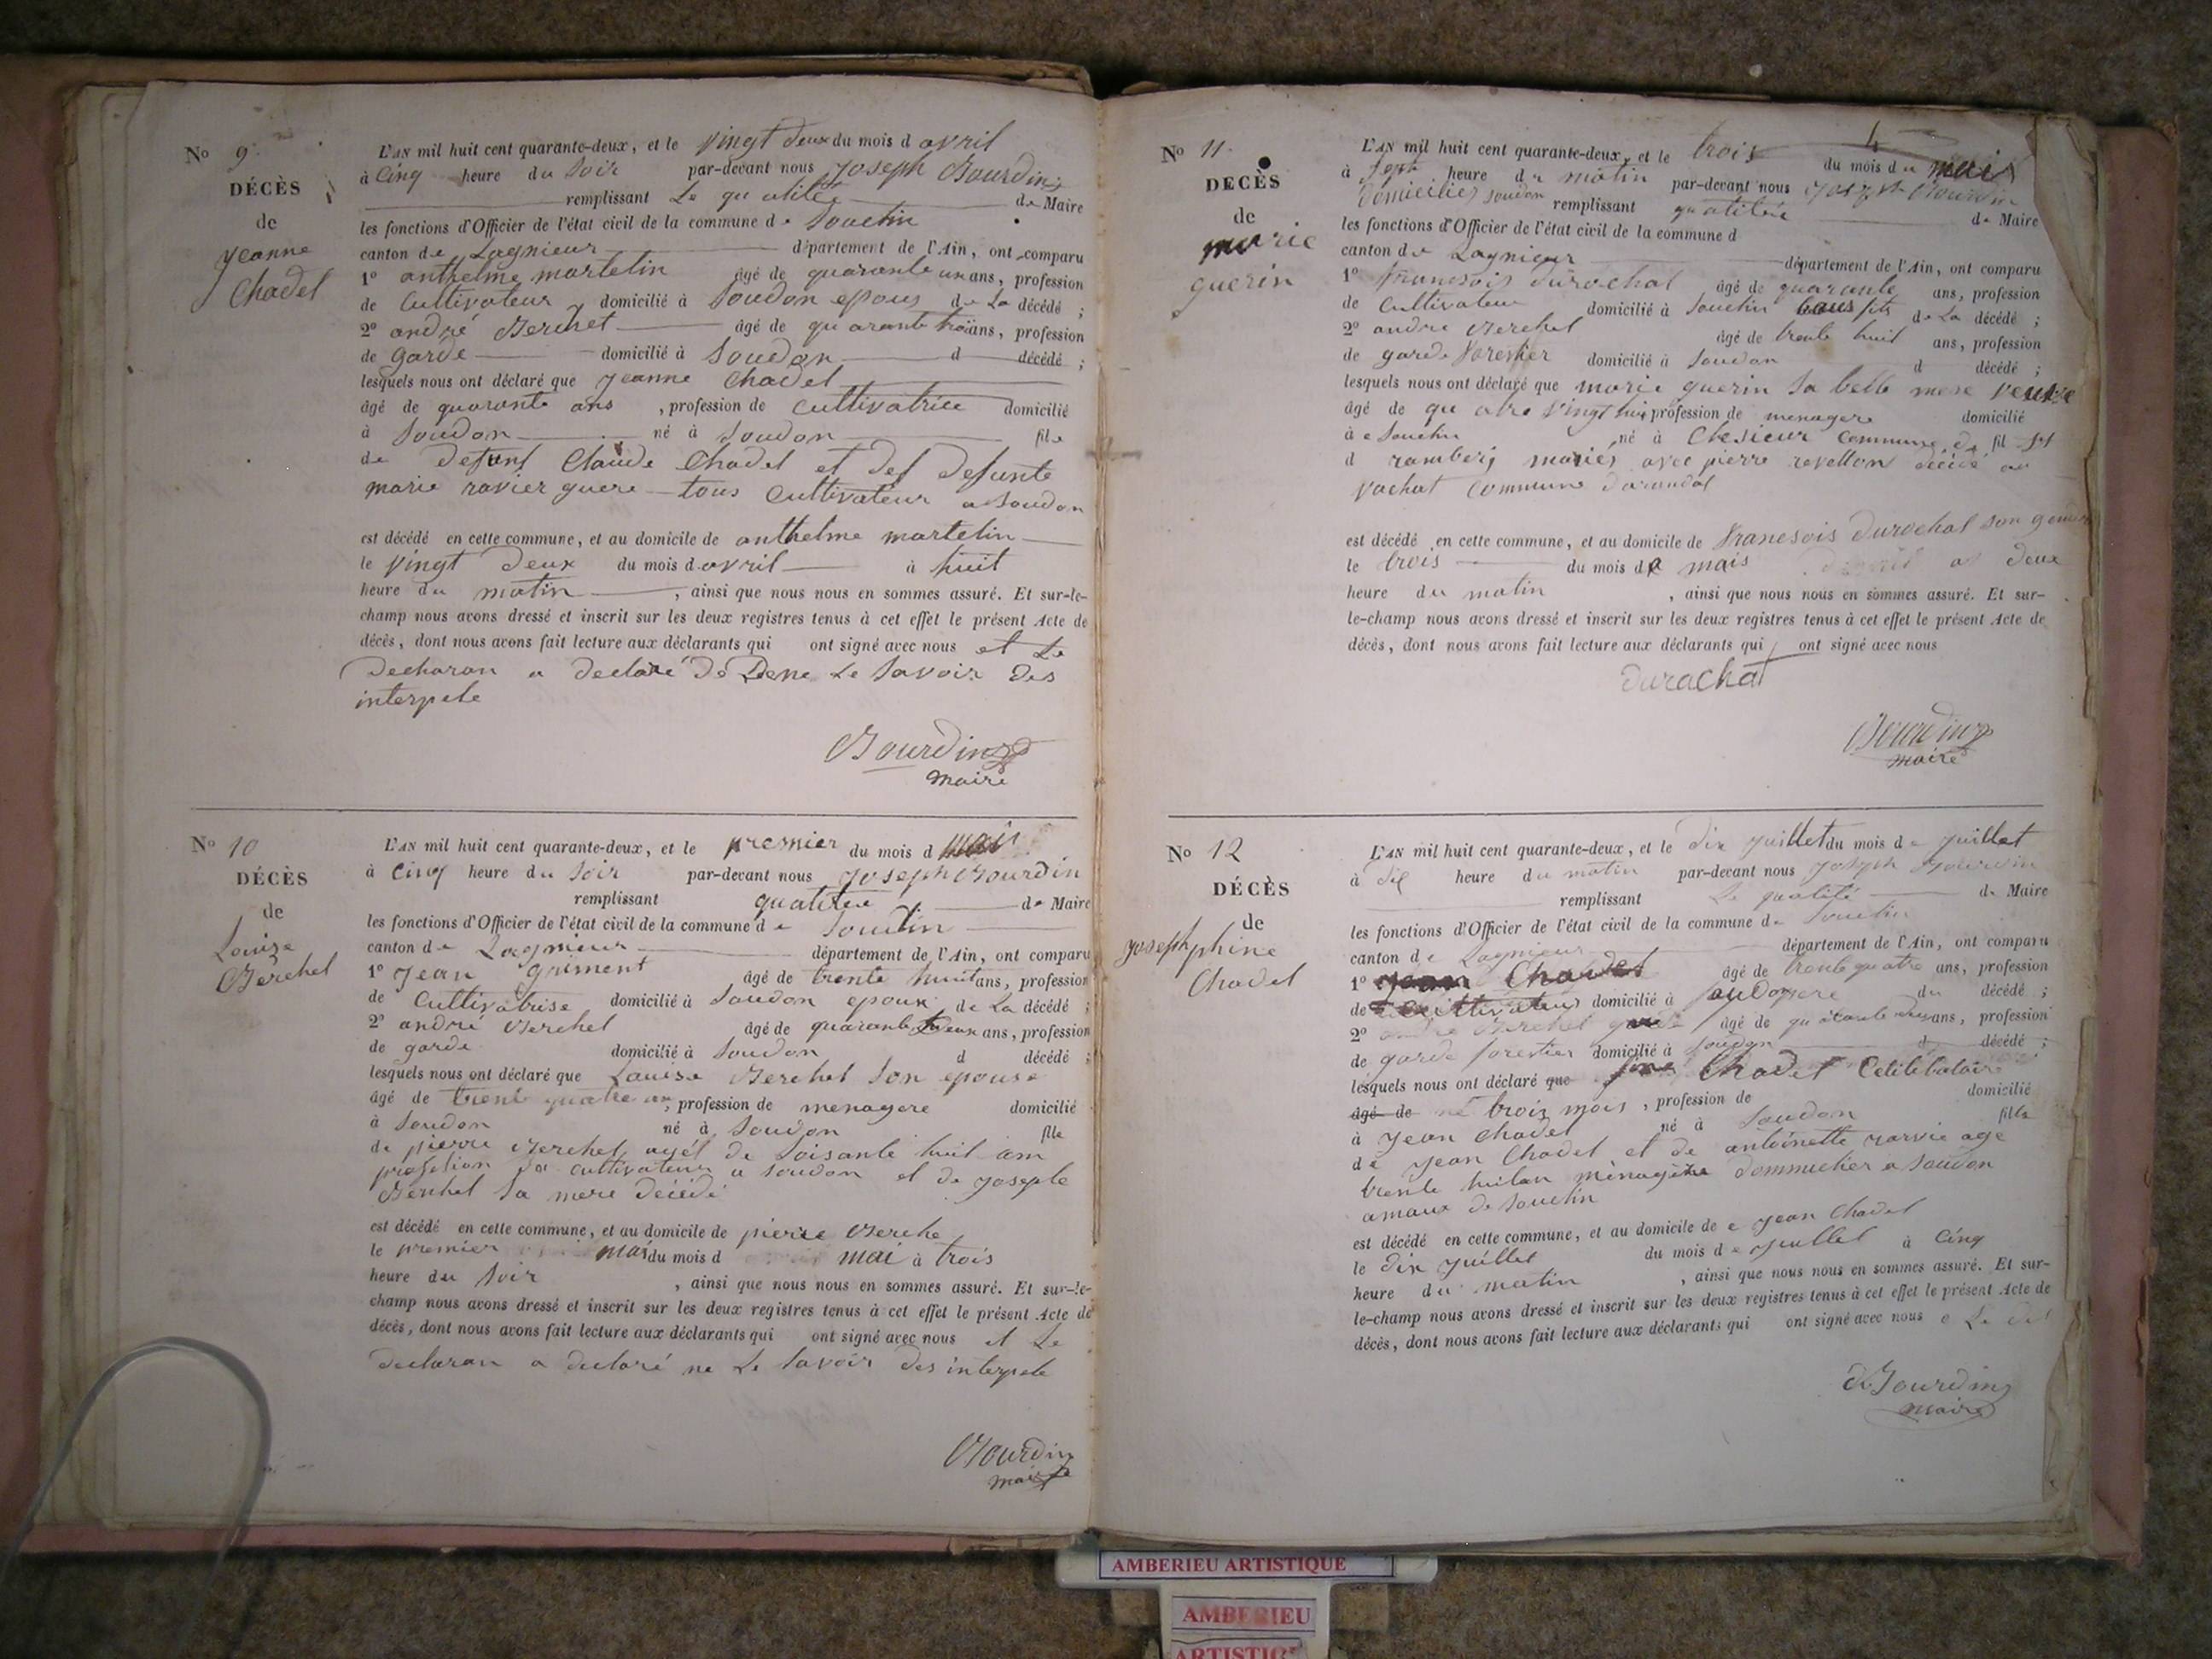 No 9
DÉCÈS
de
jeanne
Chadel
L'AN mil huit cent quarante-deux, et le vingt deux du mois d avril
à Cinq heure du Soir par-devant nous joseph Bourdin
remplissant Le qualitée de Maire
les fonctions d'Officier de l'état civil de la commune de Souclin
canton de Lagnieur département de l'Ain, ont comparu
1o anthelme martelin âgé de quarante un ans, profession
de Cultivateur domicilié à Soudon epous de La décédé ;
2o andré Berchet âgé de quarante trois ans, profession
de garde domicilié à Soudon d décédé ;
lesquels nous ont déclaré que jeanne Chadel
âgé de quarante ans , profession de Cultivatrice domicilié
à Soudon né à Soudon fille
de defunt Claude Chadel et def defunte
marie ravier guere tous Cultivateur a Soudon
est décédé en cette commune, et au domicile de anthelme martelin
le vingt deux du mois d avril à huit
heure du matin , ainsi que nous nous en sommes assuré. Et sur-le-
champ nous avons dressé et inscrit sur les deux registres tenus à cet effet le présent Acte de
décès, dont nous avons fait lecture aux déclarants qui ont signé avec nous et Le
decharan a declaré de Le Savoir des
interpele
Bourdin
maire
No 10
DÉCÈS
de
Louise
Berchel
L'AN mil huit cent quarante-deux, et le premier du mois d mai
à Cinq heure du Soir par-devant nous joseph Bourdin
remplissant qualitée de Maire
les fonctions d'Officier de l'état civil de la commune de Souclin
canton de Lagnieur département de l'Ain, ont comparu
1o jean âgé de trente huit ans, profession
de Cultivatrise domicilié à Soudon epoux de La décédé ;
2o andré Berchel âgé de quarante deux ans, profession
de garde domicilié à Soudon d décédé ;
lesquels nous ont déclaré que Louise Berchel Son epouse
âgé de trente quatre an, profession de menagere domicilié
à Soudon né à Soudon fille
de pierre Berchel agél de Soisante huit am
profetion de cultivateur a Soudon et de josepte
Berchel Sa mere décédé
est décédé en cette commune, et au domicile de pierre Berche
le premier mai du mois d mai à trois
heure du Soir , ainsi que nous nous en sommes assuré. Et sur-le-
champ nous avons dressé et inscrit sur les deux registres tenus à cet effet le présent Acte de
décès, dont nous avons fait lecture aux déclarants qui ont signé avec nous et Le
declaran a declaré ne Le Savoir des interpele
Bourdin
maire
No 11
DÉCÈS
de
marie
guerin
4
L'AN mil huit cent quarante-deux, et le trois du mois de mais
à Sept heure du matin par-devant nous joseph Bourdin
Domicilies Soudon remplissant qualitée de Maire
les fonctions d'Officier de l'état civil de la commune d
canton de Lagnieur département de l'Ain, ont comparu
1o francsois durochat âgé de quarante ans, profession
de Cultivateur domicilié à Souclin fils de La décédé ;
2o andre Berchel âgé de trente huit ans, profession
de garde forestier domicilié à Soudon d décédé ;
lesquels nous ont déclaré que marie guerin Sa belle mere veuve
âgé de quatre vingt huit profession de menagere domicilié
à Souclin né à Chesieur Commune de fil
d rambery mariés avec pierre revellon décidé au
vachat Commune darandas
est décédé en cette commune, et au domicile de francsois durochat son
le trois du mois de mais a deux
heure du matin , ainsi que nous nous en sommes assuré. Et sur-
le-champ nous avons dressé et inscrit sur les deux registres tenus à cet effet le présent Acte de
décès, dont nous avons fait lecture aux déclarants qui ont signé avec nous
durachat
Bourdin
maire
No 12
DÉCÈS
de
josephphine
Chadel
L'AN mil huit cent quarante-deux, et le dix juillet du mois de juillet
à dix heure du matin par-devant nous joseph Bourdin
remplissant Le qualité de Maire
les fonctions d'Officier de l'état civil de la commune de Souclin
canton de Lagnieur département de l'Ain, ont comparu
1o jean Chadel âgé de trente quatre ans, profession
de Cultivateur domicilié à Soudon pere du décédé ;
2o andre Berchel garde âgé de quarante deux ans, profession
de garde forestier domicilié à Soudon d décédé ;
lesquels nous ont déclaré que Chadel Celilibataire
âgé de né trois mois , profession de domicilié
à jean Chadel né à Soudon fille
de jean Chadel et de antoinette ravie age
trente huitan menagère dommicilier a Soudon
amaux de Souclin
est décédé en cette commune, et au domicile de jean Chadel
le dix juillet du mois de juillet à Cinq
heure du matin , ainsi que nous nous en sommes assuré. Et sur-
le-champ nous avons dressé et inscrit sur les deux registres tenus à cet effet le présent Acte de
décès, dont nous avons fait lecture aux déclarants qui ont signé avec nous
Bourdin
maire
AMBERIEU ARTISTIQUE
AMBERIEU
ARTISTIQUE